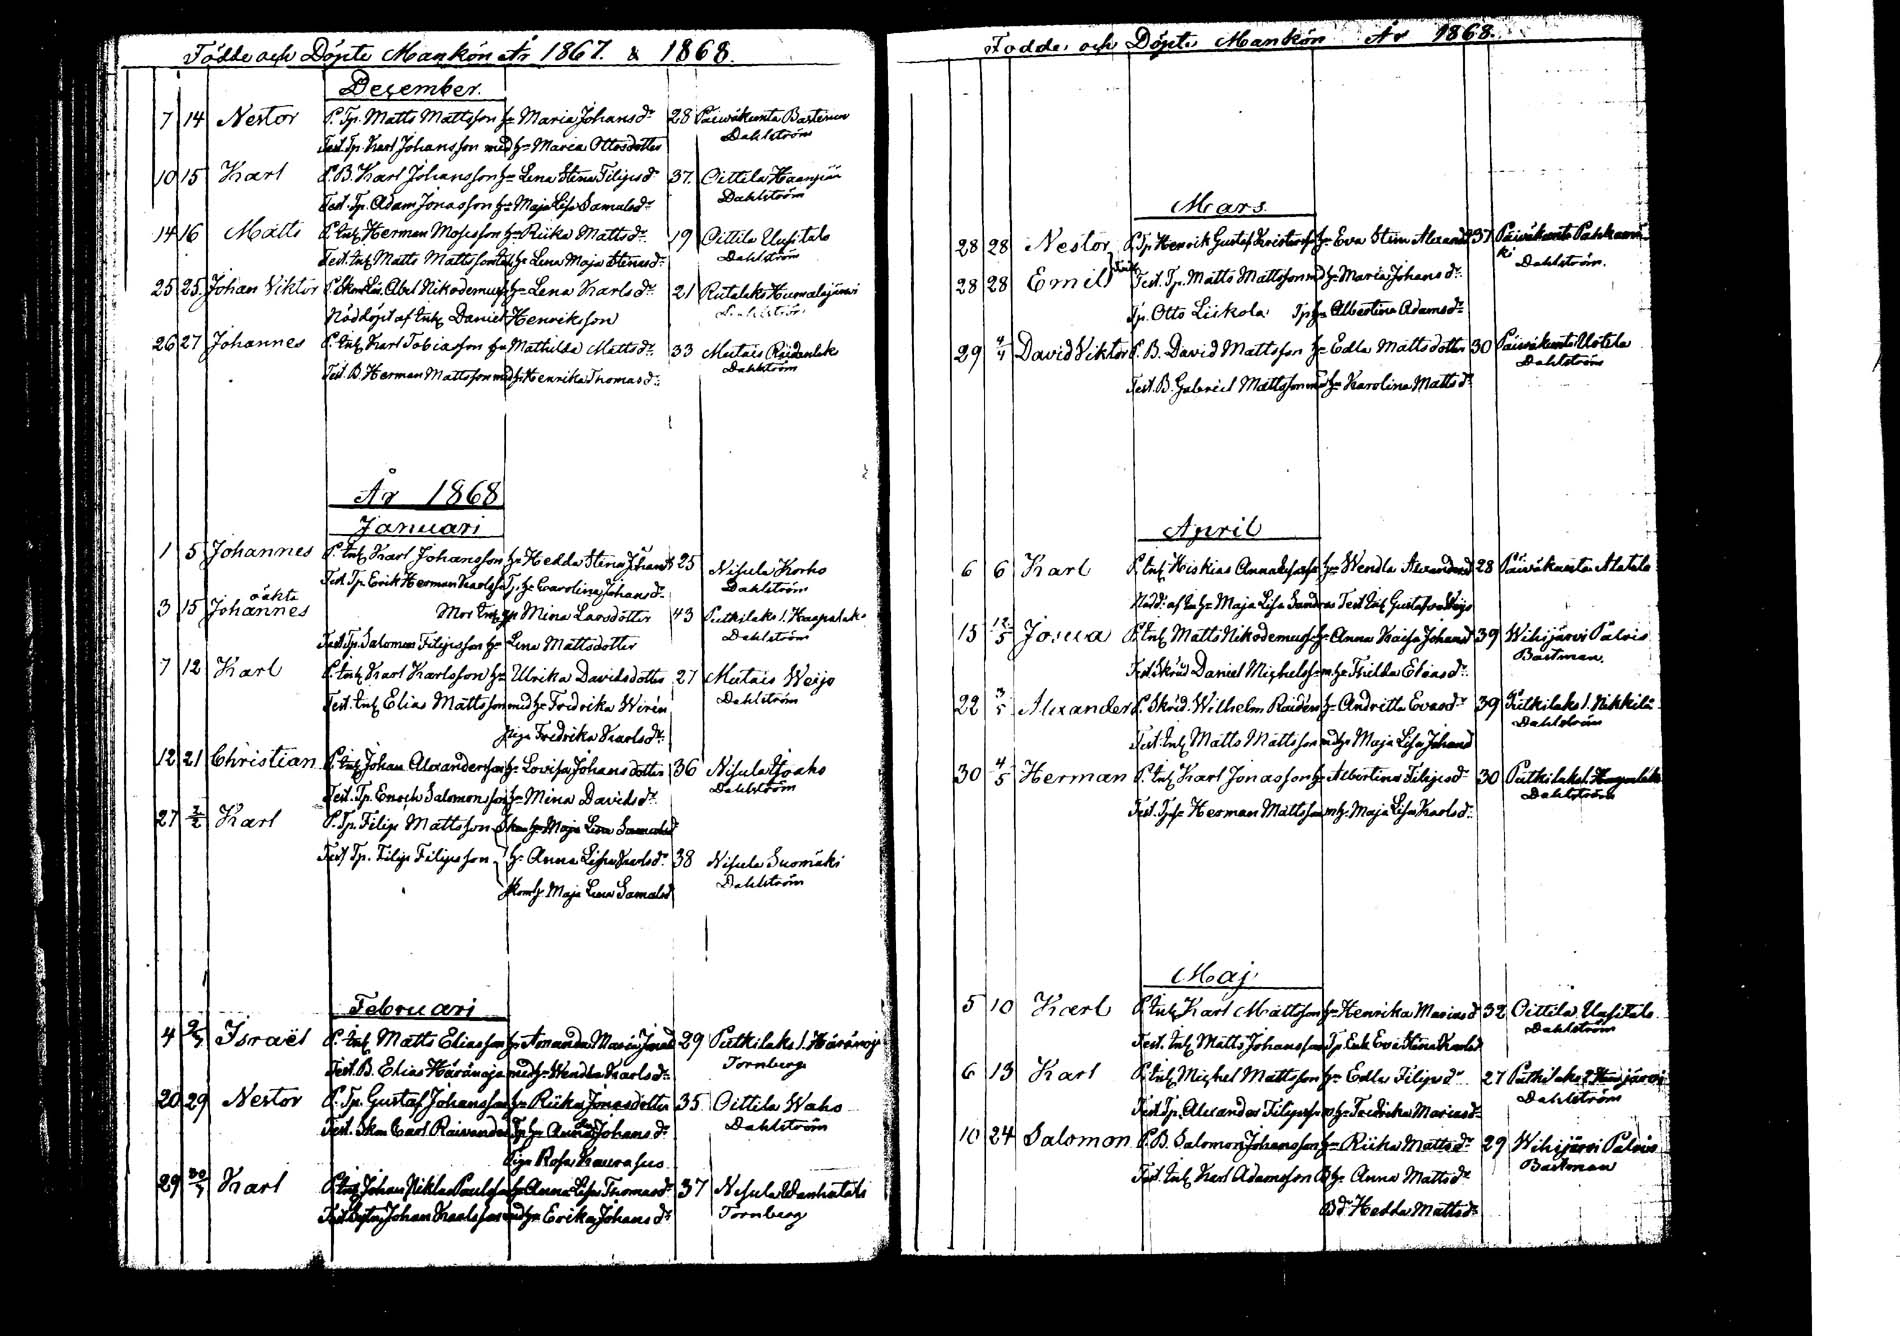 Födde och Döpte Mankön År 1867. & 1868.
December.
7 14 Nestor P. Tp. Matts Mattsson hu Maria Johansdr 28 Päiväkunta
Dahlström
Test. Tp. Karl Johansson med hu Maria Ottosdotter
10 15 Karl P. B. Karl Johansson hu Lena Stina Filipsdr 37. Oittila Haanpää
Dahlström
Test. Tp. Adam Jonasson hu Maja Lisa Samalsdr
14 16 Matts P. Inh Herman Mosesson hu Riika Mattsdr 19 Oittila Uusitalo
Dahlström
Test. Inh Matts Mattsson hu Lena Maja Stenasdr
25 25 Johan Viktor P. Abel Nikodemusson hu Lena Karlsdr 21 Rutalaks Humalajärvi
Nöddöpt af Inh Daniel Henriksson
26 27 Johannes P. Inh Karl Tobiasson hu Mathilda Mattsdr 33 Mutais Raidanlaks
Dahlström
Test. B. Herman Mattsson med hu Henrika Thomasdr
År 1868
Januari
1 5 Johannes P. Inh Karl Johansson hu Hedda Stina Johansdr 25 Nisula Korho
Dahlström
Test. Tp. Erik Herman Karlsson Tp. hu Carolina Johansdr
oäkta
3 15 Johannes Mor Inh Mina Larsdotter 43 Putkilaks 1. Haapalaks
Dahlström
Test. Tp. Salomon Filipsson hu Lena Mattsdotter
7 12 Karl P. Inh Karl Karlsson hu Ulrika Davidsdotter 27 Mutais Weijo
Dahlström
Test. Inh Elias Mattsson med hu Fredrika Wirén
piga Fredrika Karlsdr
12 21 Christian P. Inh Johan Alexandersson hu Lovisa Johansdotter 36 Nisula
Dahlström
Test. Tp. Enoch Salomonsson hu Mina Davidsdr
27 2/2 Karl P. Tp. Filip Mattsson Maja Lena Samalsd
Test Tp. Filip Filipsson hu Anna Lisa Karlsdr 38 Nisula Suomäki
Dahlström
Maja Lena Samalsd
Februari
4 Israël P. Inh Matts Eliasson hu Amanda Maria Jonasd 29 Putkilaks 1. Häränoja
Tornberg
Test. B. Elias Häränoja med hu Wendla Karlsdr
20 29 Nestor P. Tp. Gustaf Johansson hu Riika Jonasdotter 35 Oittila Waho
Dahlström
Test. Carl Raivander Tp hu Anna Johansdr
Piga Rosa Kaurasus
29 Karl P. Inh Johan Niklas Paulsson hu Anna Lisa Thomasdr 37 Nisula Wanhatalo
Tornberg
Test. Johan Karlsson med hu Erika Johansdr
Födde och Döpte Mankön År 1868.
Mars.
28 28 Nestor P. Tp. Henrik Gustaf Kristersson hu Eva Stina Alexandr 37 Päiväkunta
Dahlström.
28 28 Emil Test. Tp. Matts Mattsson med hu Maria Johansdr
Tp. Otto Liskola Tp hu Albertina Adamsdr
29 4/4 David Viktor P. B. David Mattsson hu Edla Mattsdotter 30 Päiväkunta Uotila
Dahlström
Test. B. Gabriel Mattsson med hu Karolina Mattsdr
April
6 6 Karl P. Inh Hiskias hu Wendla Alexandersd 28 Päiväkunta Alatalo
Nödd. af Maja Lisa Sandras Test Inh Gustaf
15 12/5 Josua P. Inh Matts Nikodemusson hu Anna Kaisa Johansd 39 Wihijärvi Palvis
Bastman.
Test. Skräd Daniel Michelsson m hu Thilda Eliasdr
22 3/5 Alexander P. Skräd. Wilhelm Raidén hu Andritta Evasdr 39 Putkilaks 1. Nikkilä
Dahlström
Test. Inh Matts Mattsson med hu Maja Lisa Johansd
30 4/5 Herman P. Inh Karl Jonasson hu Albertina Filipsdr 30 Putkilaks 1. Haapalaks
Dahlström
Test. Herman Mattsson m hu Maja Lisa Karlsdr
Maj
5 10 Karl P. Inh Karl Mattsson hu Henrika Mariasd 32 Oittila Uusitalo
Dahlström
Test. Inh Matts Johansson Tp. Enk Eva Stina Karlsd
6 13 Karl P. Inh Michel Mattsson hu Edla Filipsdr 27 Putkilaks
Dahlström
Test. Tp. Alexander Filipsson m hu Fredrika Mariasdr
10 24 Salomon P. B. Salomon Johansson hu Riika Mattsdr 29 Wihijärvi Palvis
Bastman
Test. Inh Karl Adamsson B hu Anna Mattsdr
Bdr Hedda Mattsdr